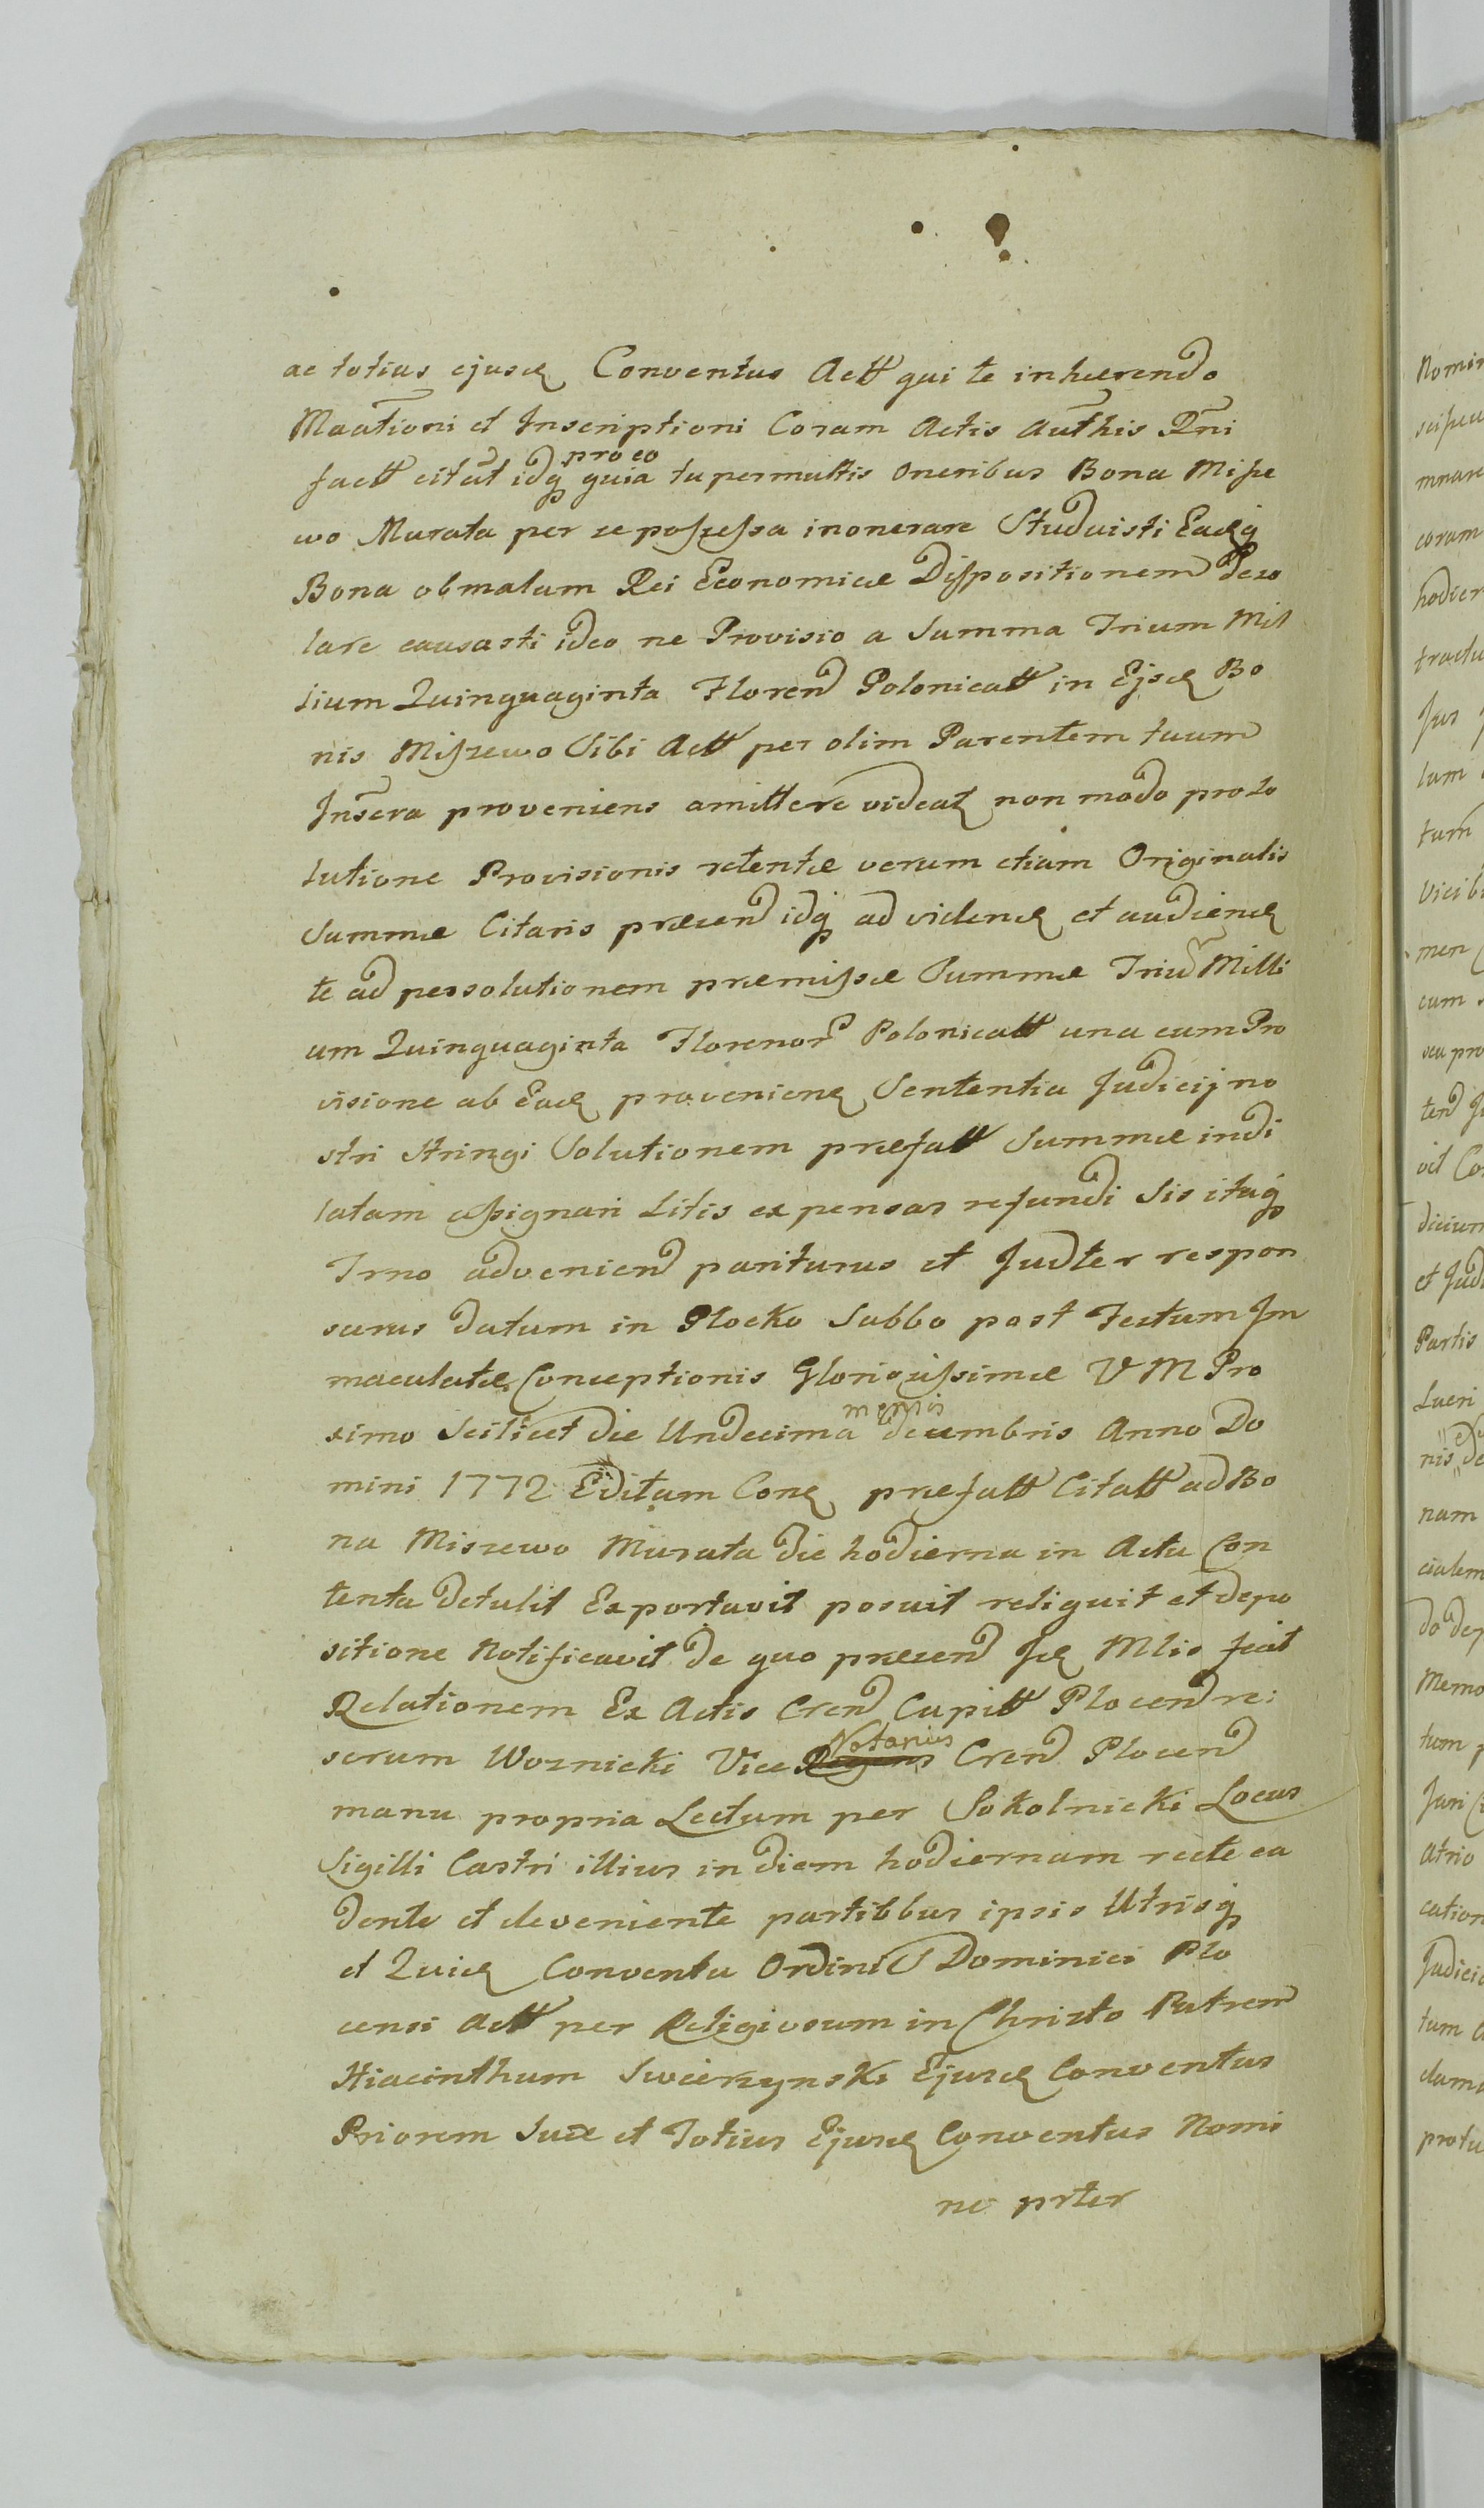 ac totius ejusd Conventus Actt qui te inhærendo
Maationi et Inscriptioni Coram Actis Authis Rni
factt citat idq pro eo quia tu permultis oneribus Bona Misze
wo Murata per se possessa inonerare Studuisti Eadq
Bona ob malam Rei Economicæ Dispositionem Deso
lare causasti ideo ne Provisio a Summa Trium Mil
lium Quinquaginta Floren Polonicatt in Ejsd Bo
nis Miszewo Sibi Actt per olim Parentem tuum
Inscra proveniens amittere videat non modo pro so
lutione Provisionis retentæ verum etiam Originalis
Summæ Citaris præsen idq ad viden et audien
te ad persolutionem præmissæ Summæ Triu Milli
um Quinquaginta Florenor Polonicatt una cum Pro
visione ab Ead provenien Sententia Judicij no
stri stringi Solutionem præfatt Summæ indi
latam assignari Litis expensas refundi Sis itaq
Trno advenien pariturus et Judter respon
surus datum in Plocko Sabbo post Festum Im
maculatæ Conceptionis Gloriosissimæ V M Pro
ximo Scilicet die Undecima mensis decembris Anno Do
mini 1772 Editam Con præfatt Citatt ad Bo
na Miszewo Murata die hodierna in Actu Con
tenta detulit Exportavit posuit reliquit et depo
sitione Notificavit de quo præsen Id Mlis fecit
Relationem Ex Actis Cren Capitt Plocen re:
scrum Woznicki Vice Regens Notarius Cren Plocen
manu propria Lectum per Sokolnicki Locus
Sigilli Castri illius in diem hodiernam recte ca
dente et deveniente partibbus ipsis Utrisq
et Quid Conventu Ordinis Dominici Plo
censi Actt per Religiosum in Christo Patrem
Hiacinthum Swierzynski Ejusd Conventus
Priorem Suo et Totius Ejusd Conventus Nomi
ne prter